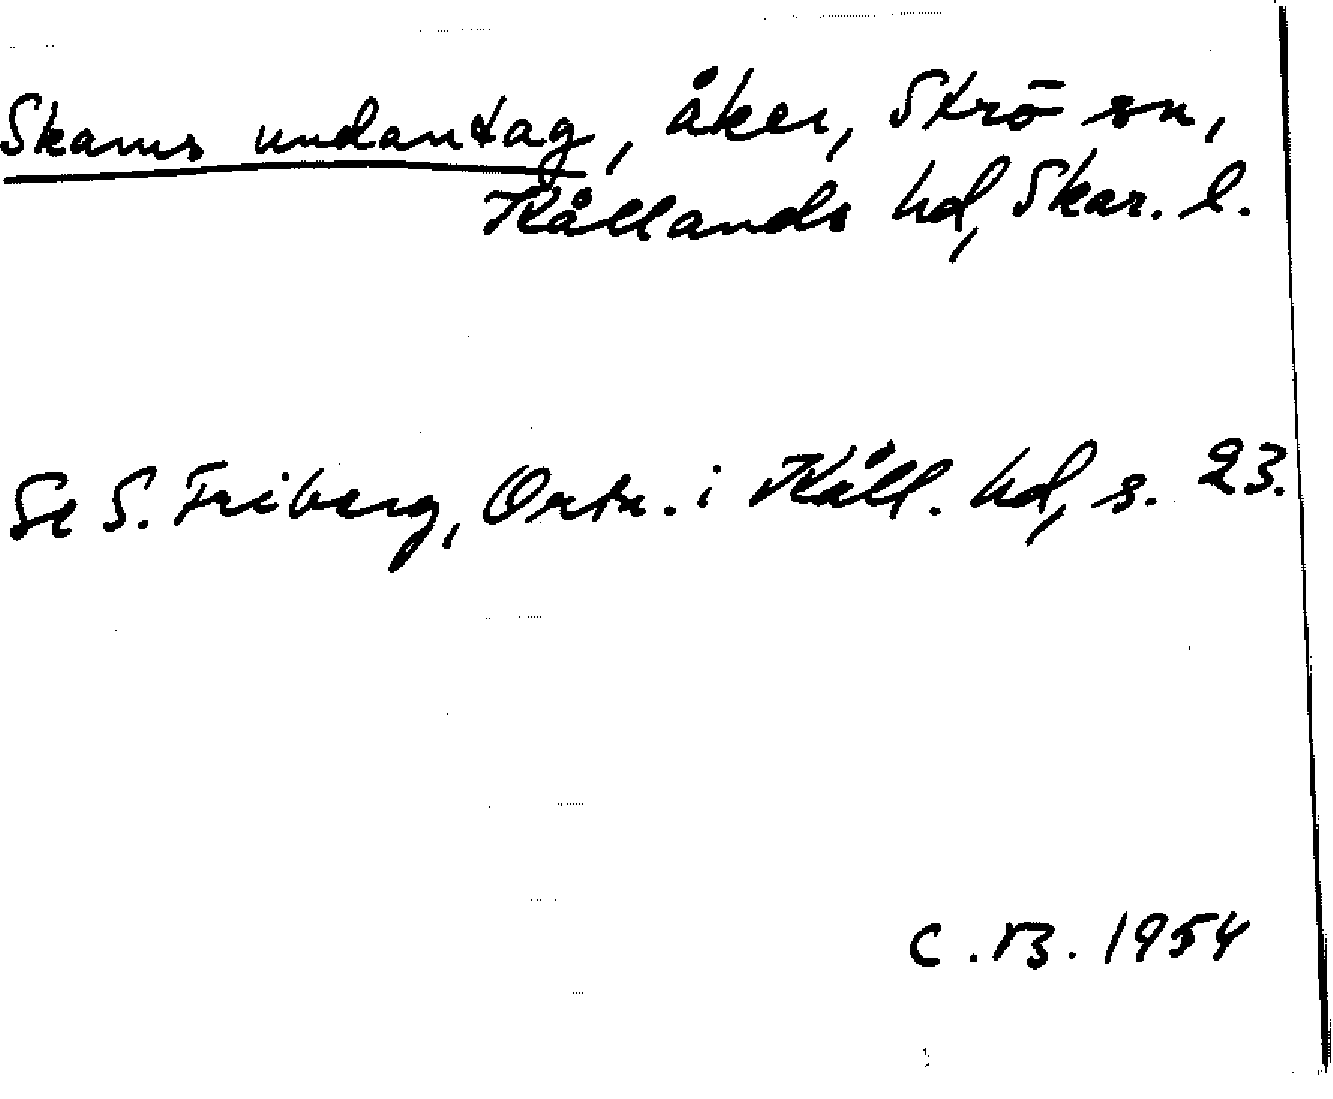 Skams undantag, åker, Strö sn,
Kållands hd, Skar. l.
Se S. Friberg, Ortn. i Kåll. hd, s. 23.
C. B. 1954